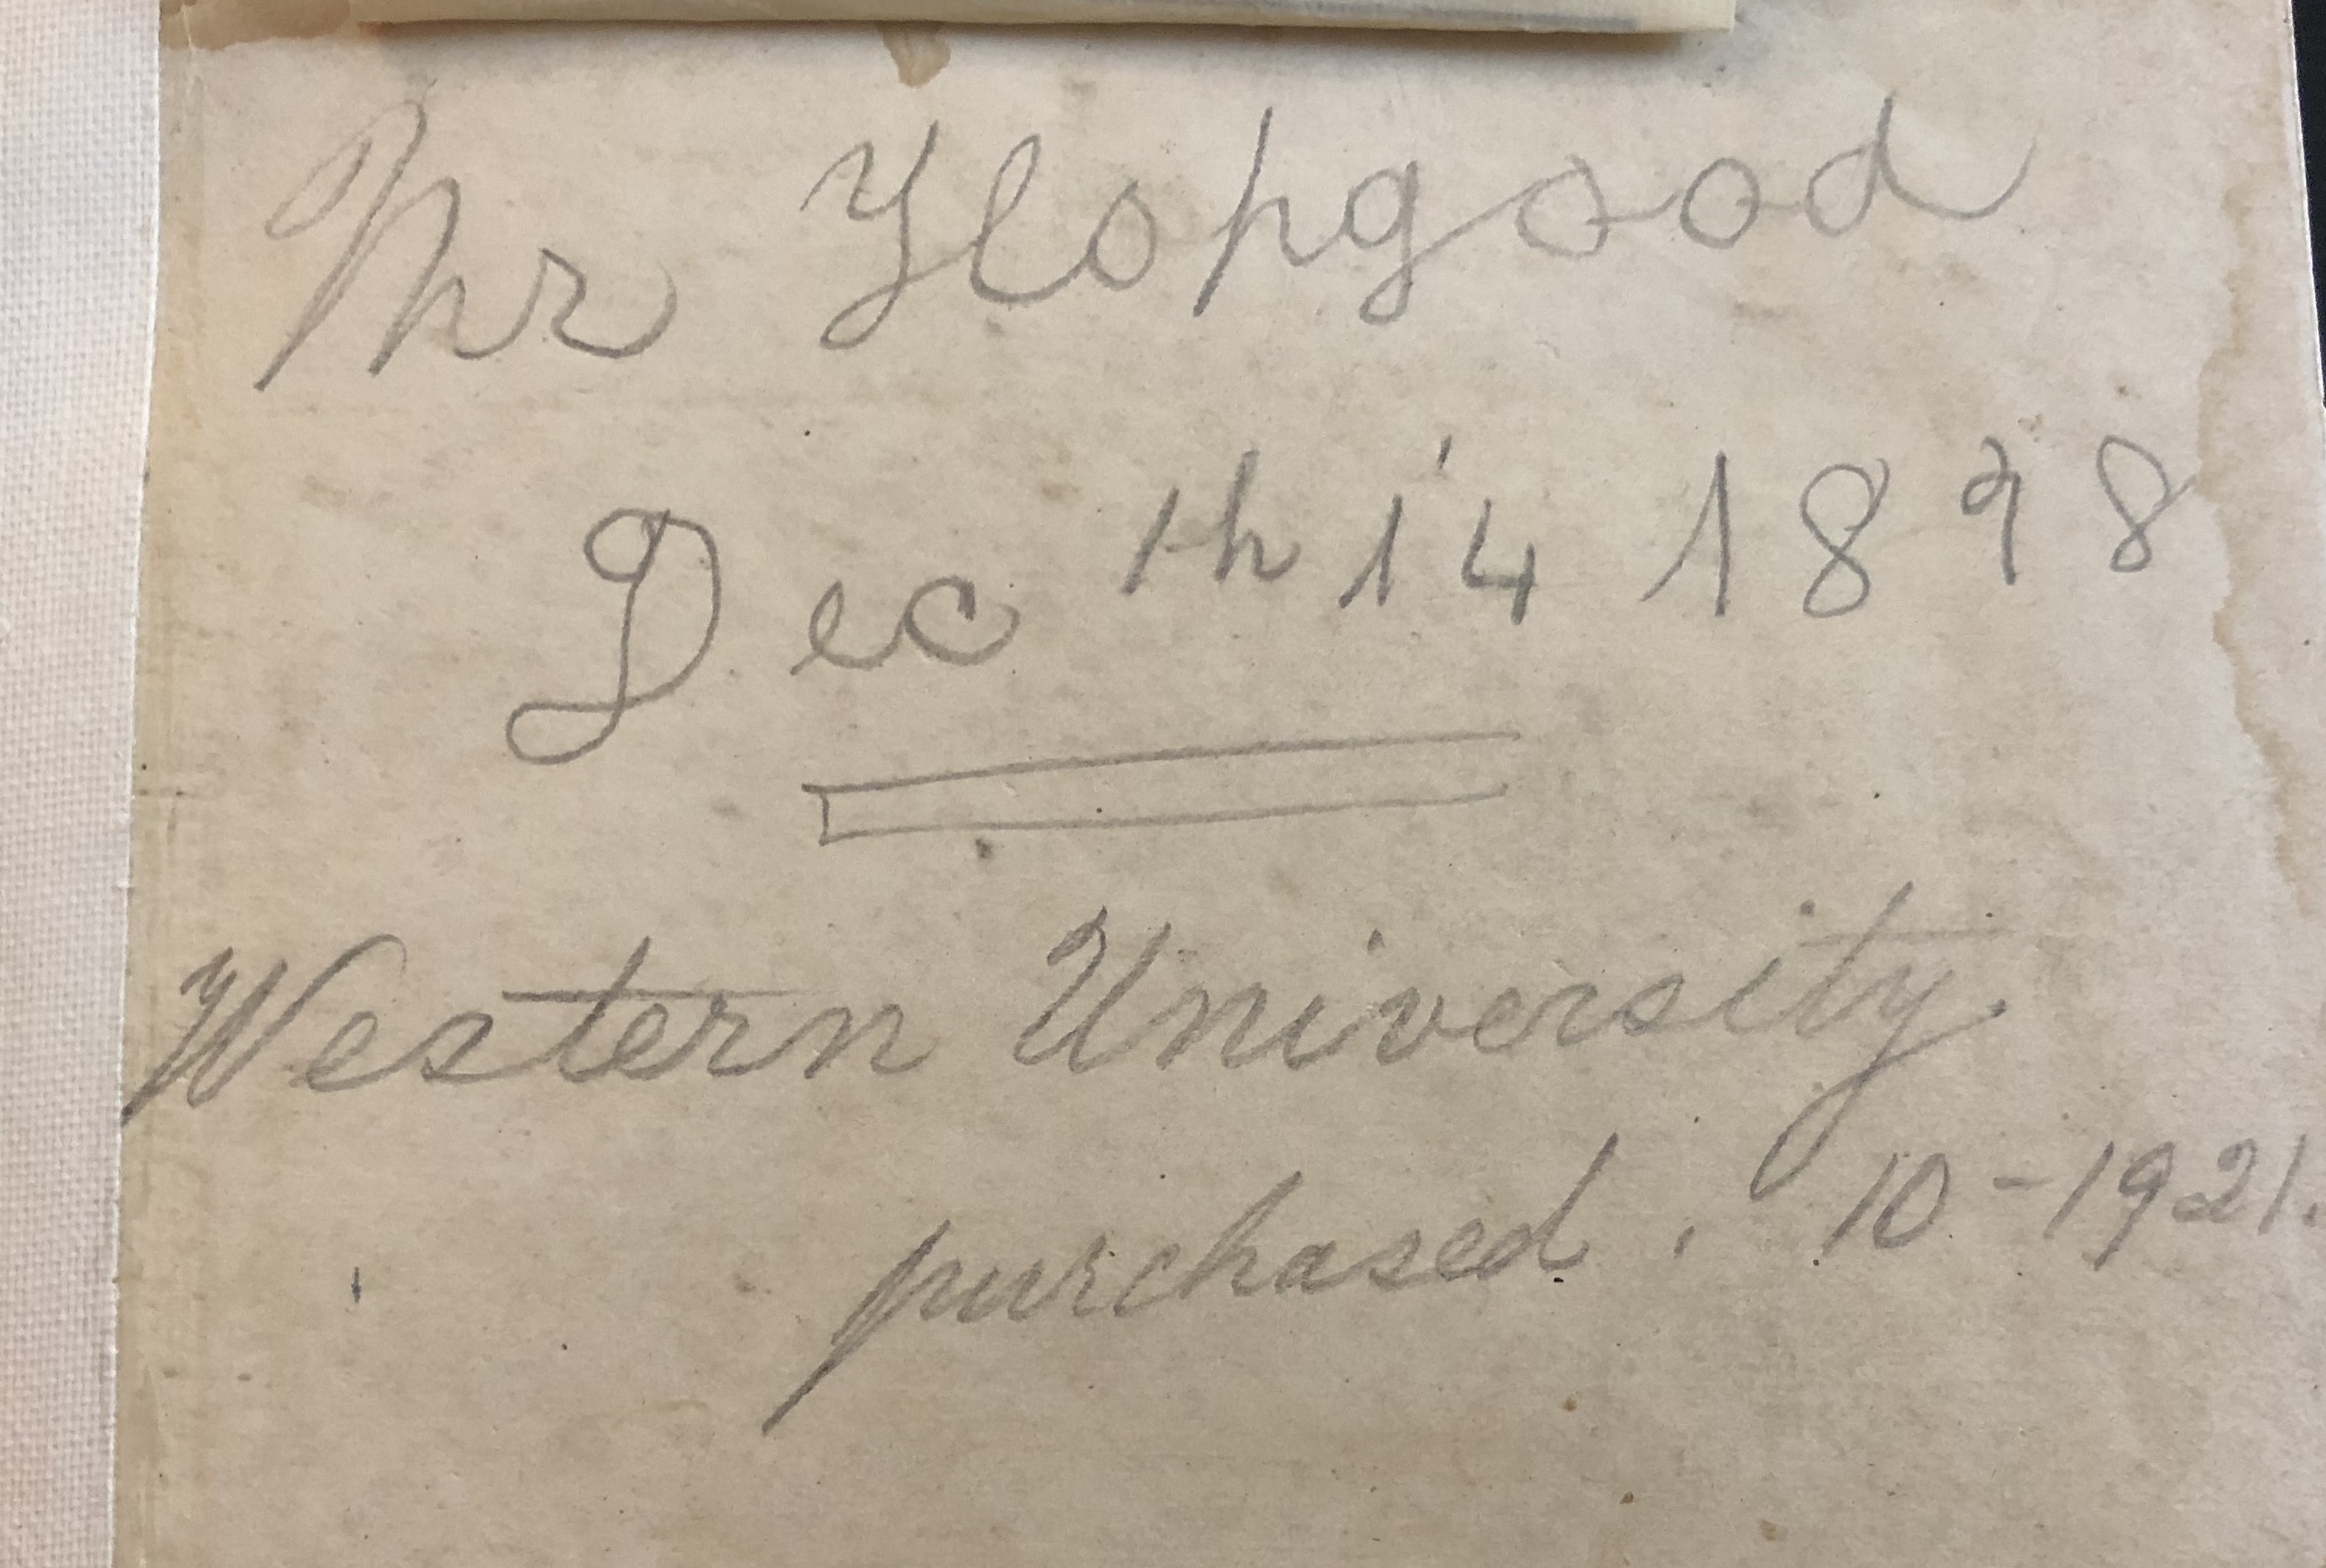 Mr Hopgood
Dec th 14 1898
Western University.
purchased. 10-1921.